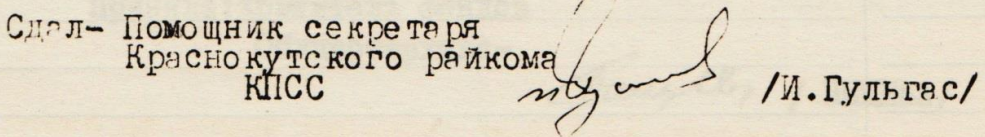 Сдал- Помощник секретаря
Краснокутского райкома
КПСС /И.Гульгас/